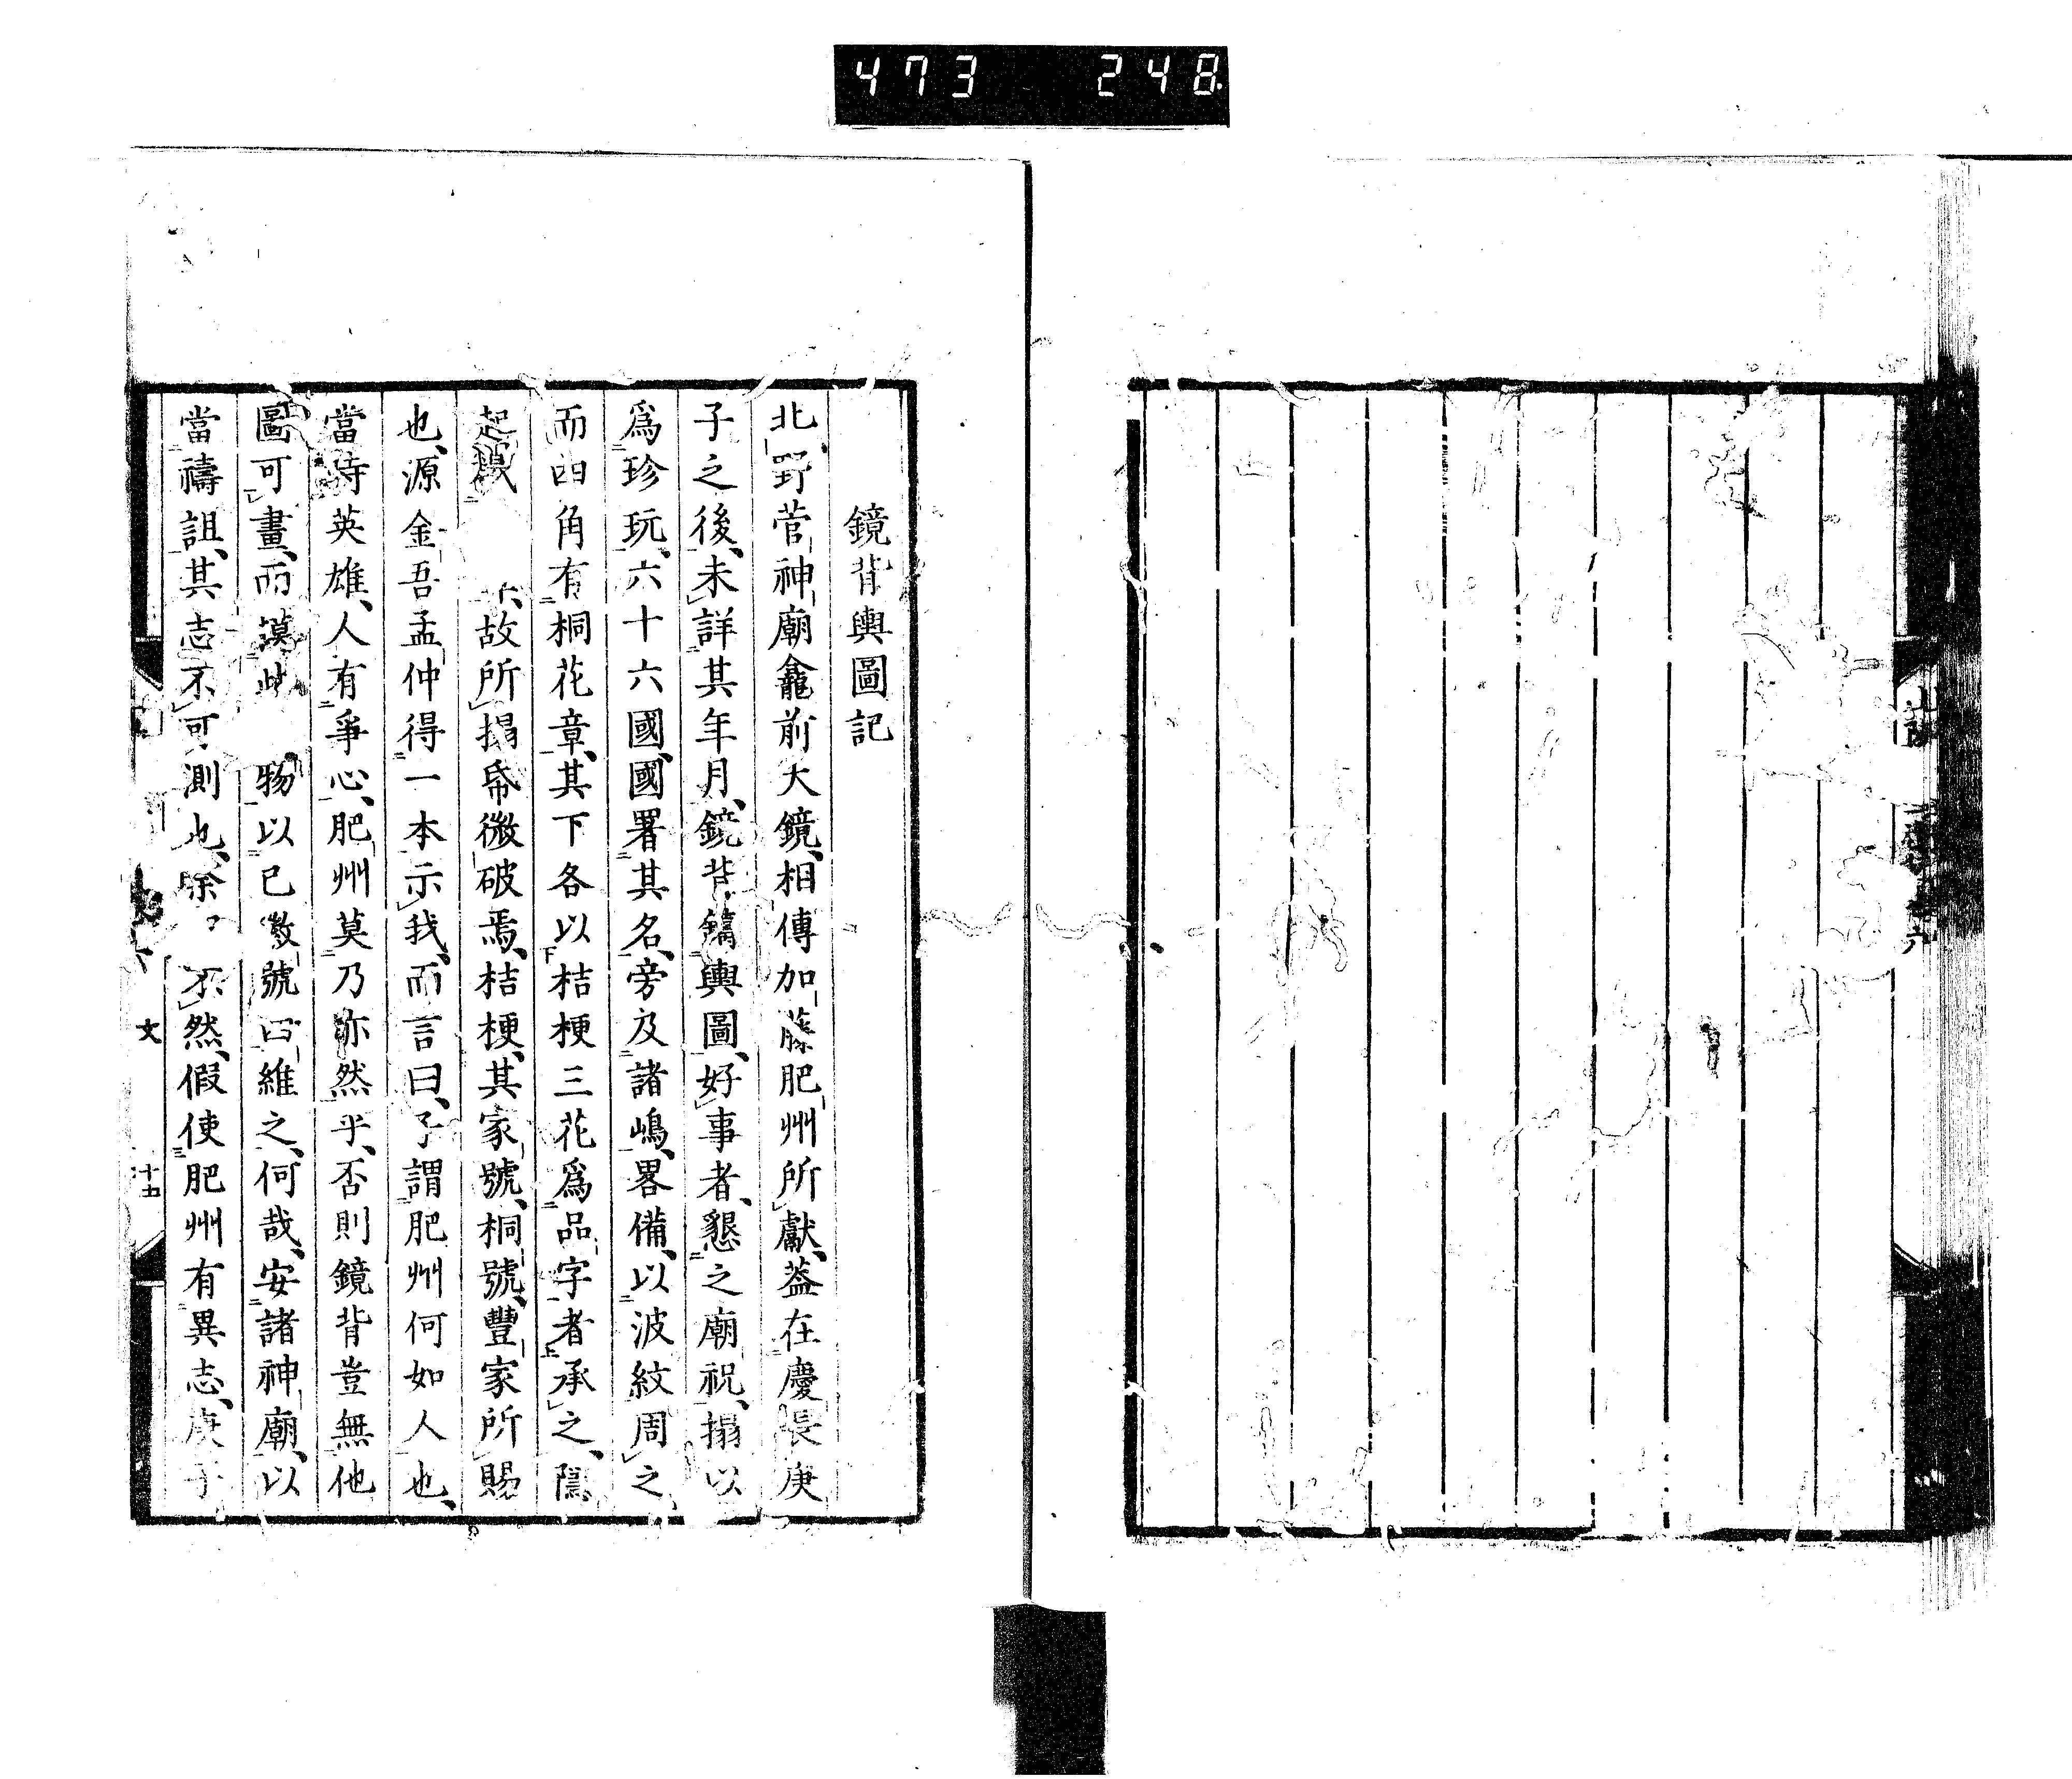 473 248
鏡背輿圖記
北野菅神廟龕前大鏡、相傳加藤肥州所獻、葢在慶長庚
子之後、未詳其年月、鏡背鐫輿圖、好事者、懇之廟祝、搨以
爲珍玩、六十六國、國署其名、旁及諸嶋、畧備、以波紋周之、
而四角有桐花章、其下各以桔梗三花爲品字者承之、隱
起、故所搨帋微破焉、桔梗、其家號、桐號、豐家所賜
也、源金吾孟仲得一本示我、而言曰、予謂肥州何如人也、
當時英雄、人有爭心、肥州莫乃亦然乎、否則鏡背豈無他
圖可畫、而此物以已徽號四維之、何哉、安諸神廟、以
當禱詛、其志不可測也、余不然、假使肥州有異志、庚子
文
十五